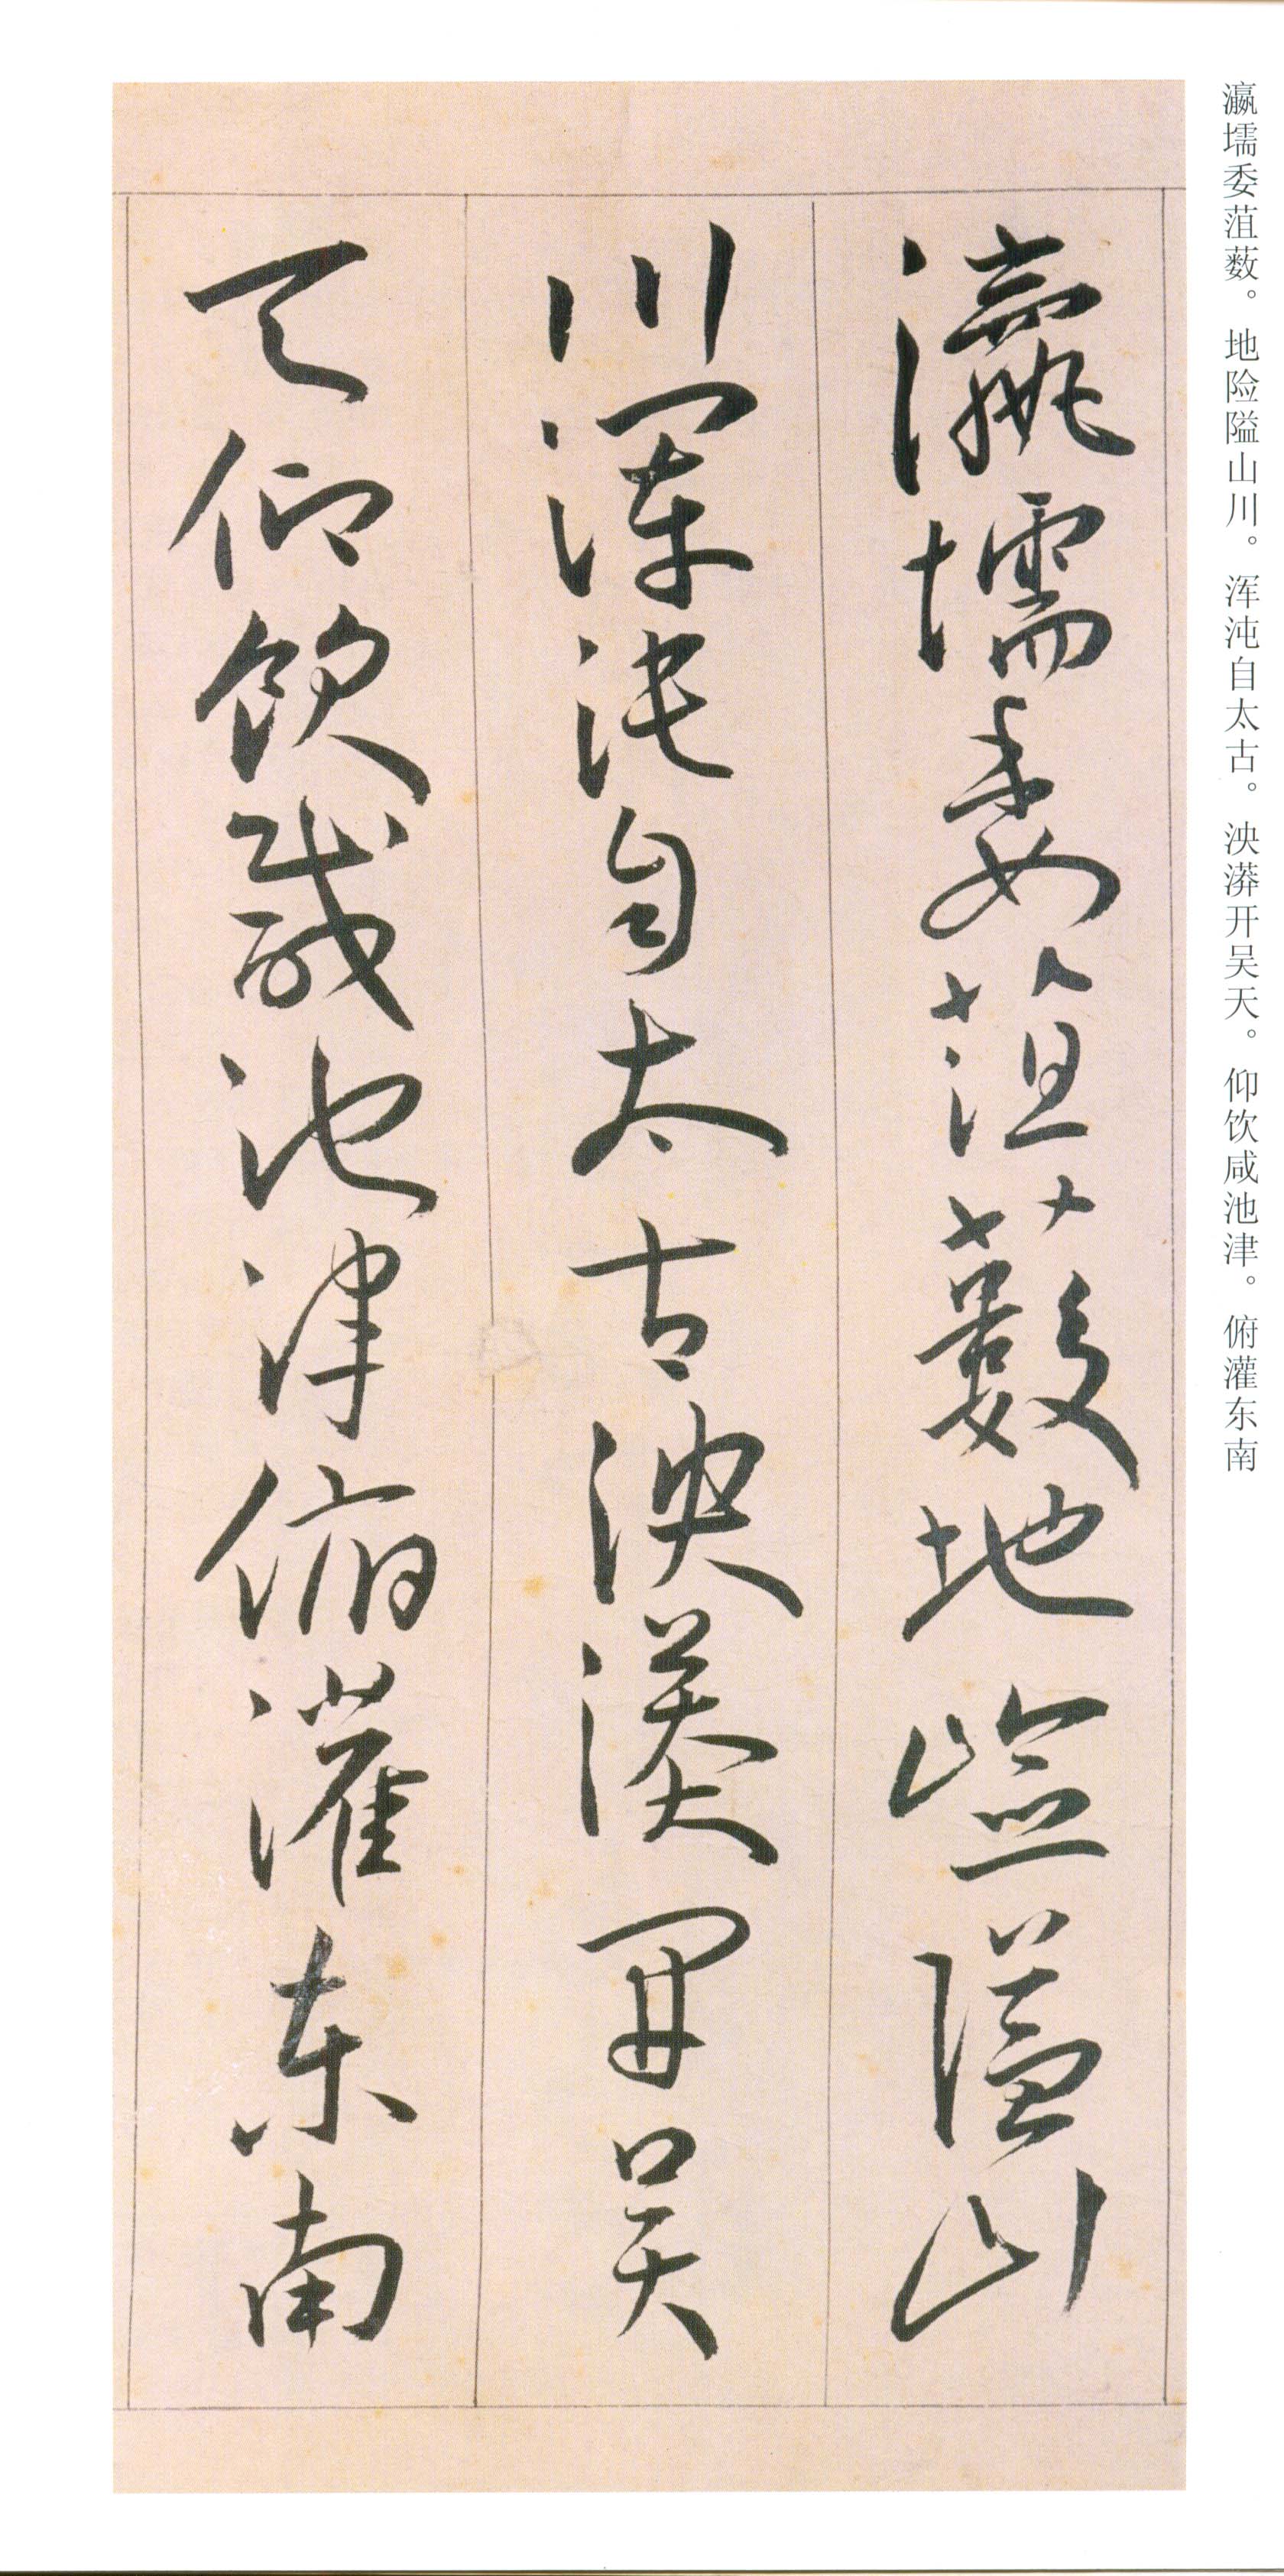 瀛壖委菹薮。地险隘山川。浑沌自太古。泱漭开吴天。仰饮咸池津。俯灌东南
瀛壖委菹藪地嶮隘山
川渾沌自太古泱漭開吴
天仰飲咸池津俯灌東南